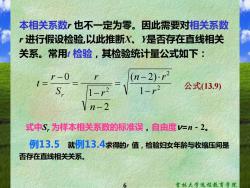 本相关系数r 也不一定为零。因此需要对相关系数
r 进行假设检验,以此推断X、Y是否存在直线相关
关系。常用t 检验，其检验统计量公式如下：
t = (r − 0)/S_r = r/√((1 − r²)/(n − 2)) = √((n − 2)·r²)/√(1 − r²) 公式(13.9)
式中S_r 为样本相关系数的标准误，自由度ν=n - 2。
例13.5 就例13.4求得的r 值，检验妇女年龄与收缩压间是
否存在直线相关关系。
6 吉林大学远程教育学院